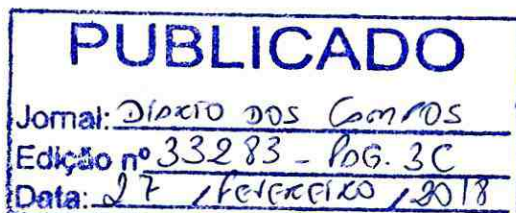 PUBLICADO
Jornal: Diário dos Campos
Edição nº 33283 - PAG. 3C
Data: 27 / FEVEREIRO / 2018